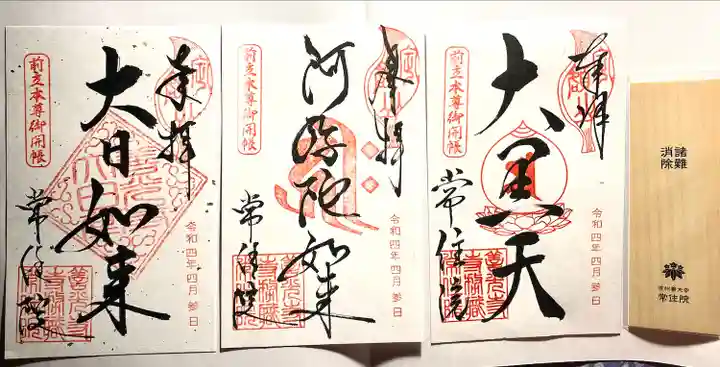 奉拝
前立本尊御開帳
大日如来
令和四年四月参日
常住院
奉拝
前立本尊御開帳
阿弥陀如来
令和四年四月参日
常住院
奉拝
前立本尊御開帳
大黒天
令和四年四月参日
常住院
諸難
消除
信州善光寺
常住院